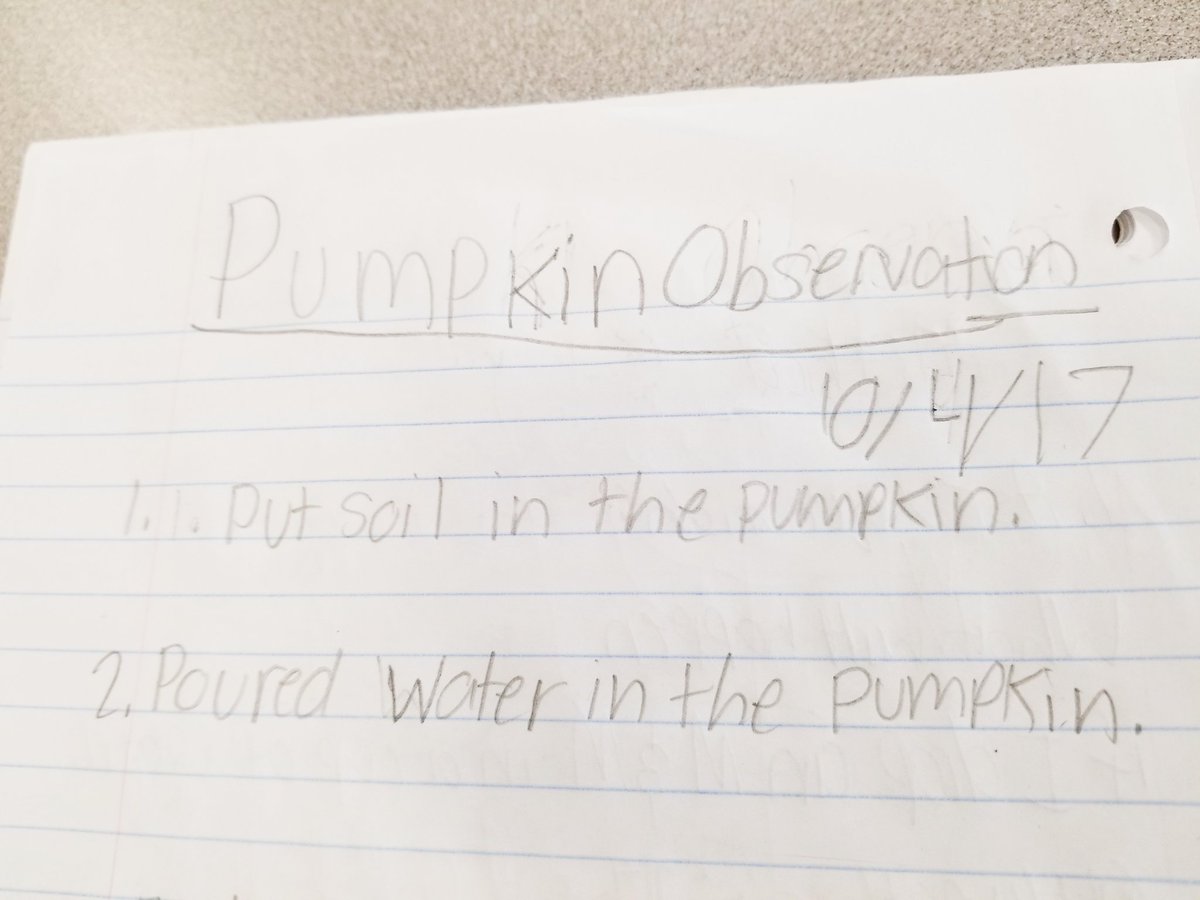 Pumpkin Observation
10/4/17
1. 1. Put soil in the pumpkin.
2. Poured water in the pumpkin.